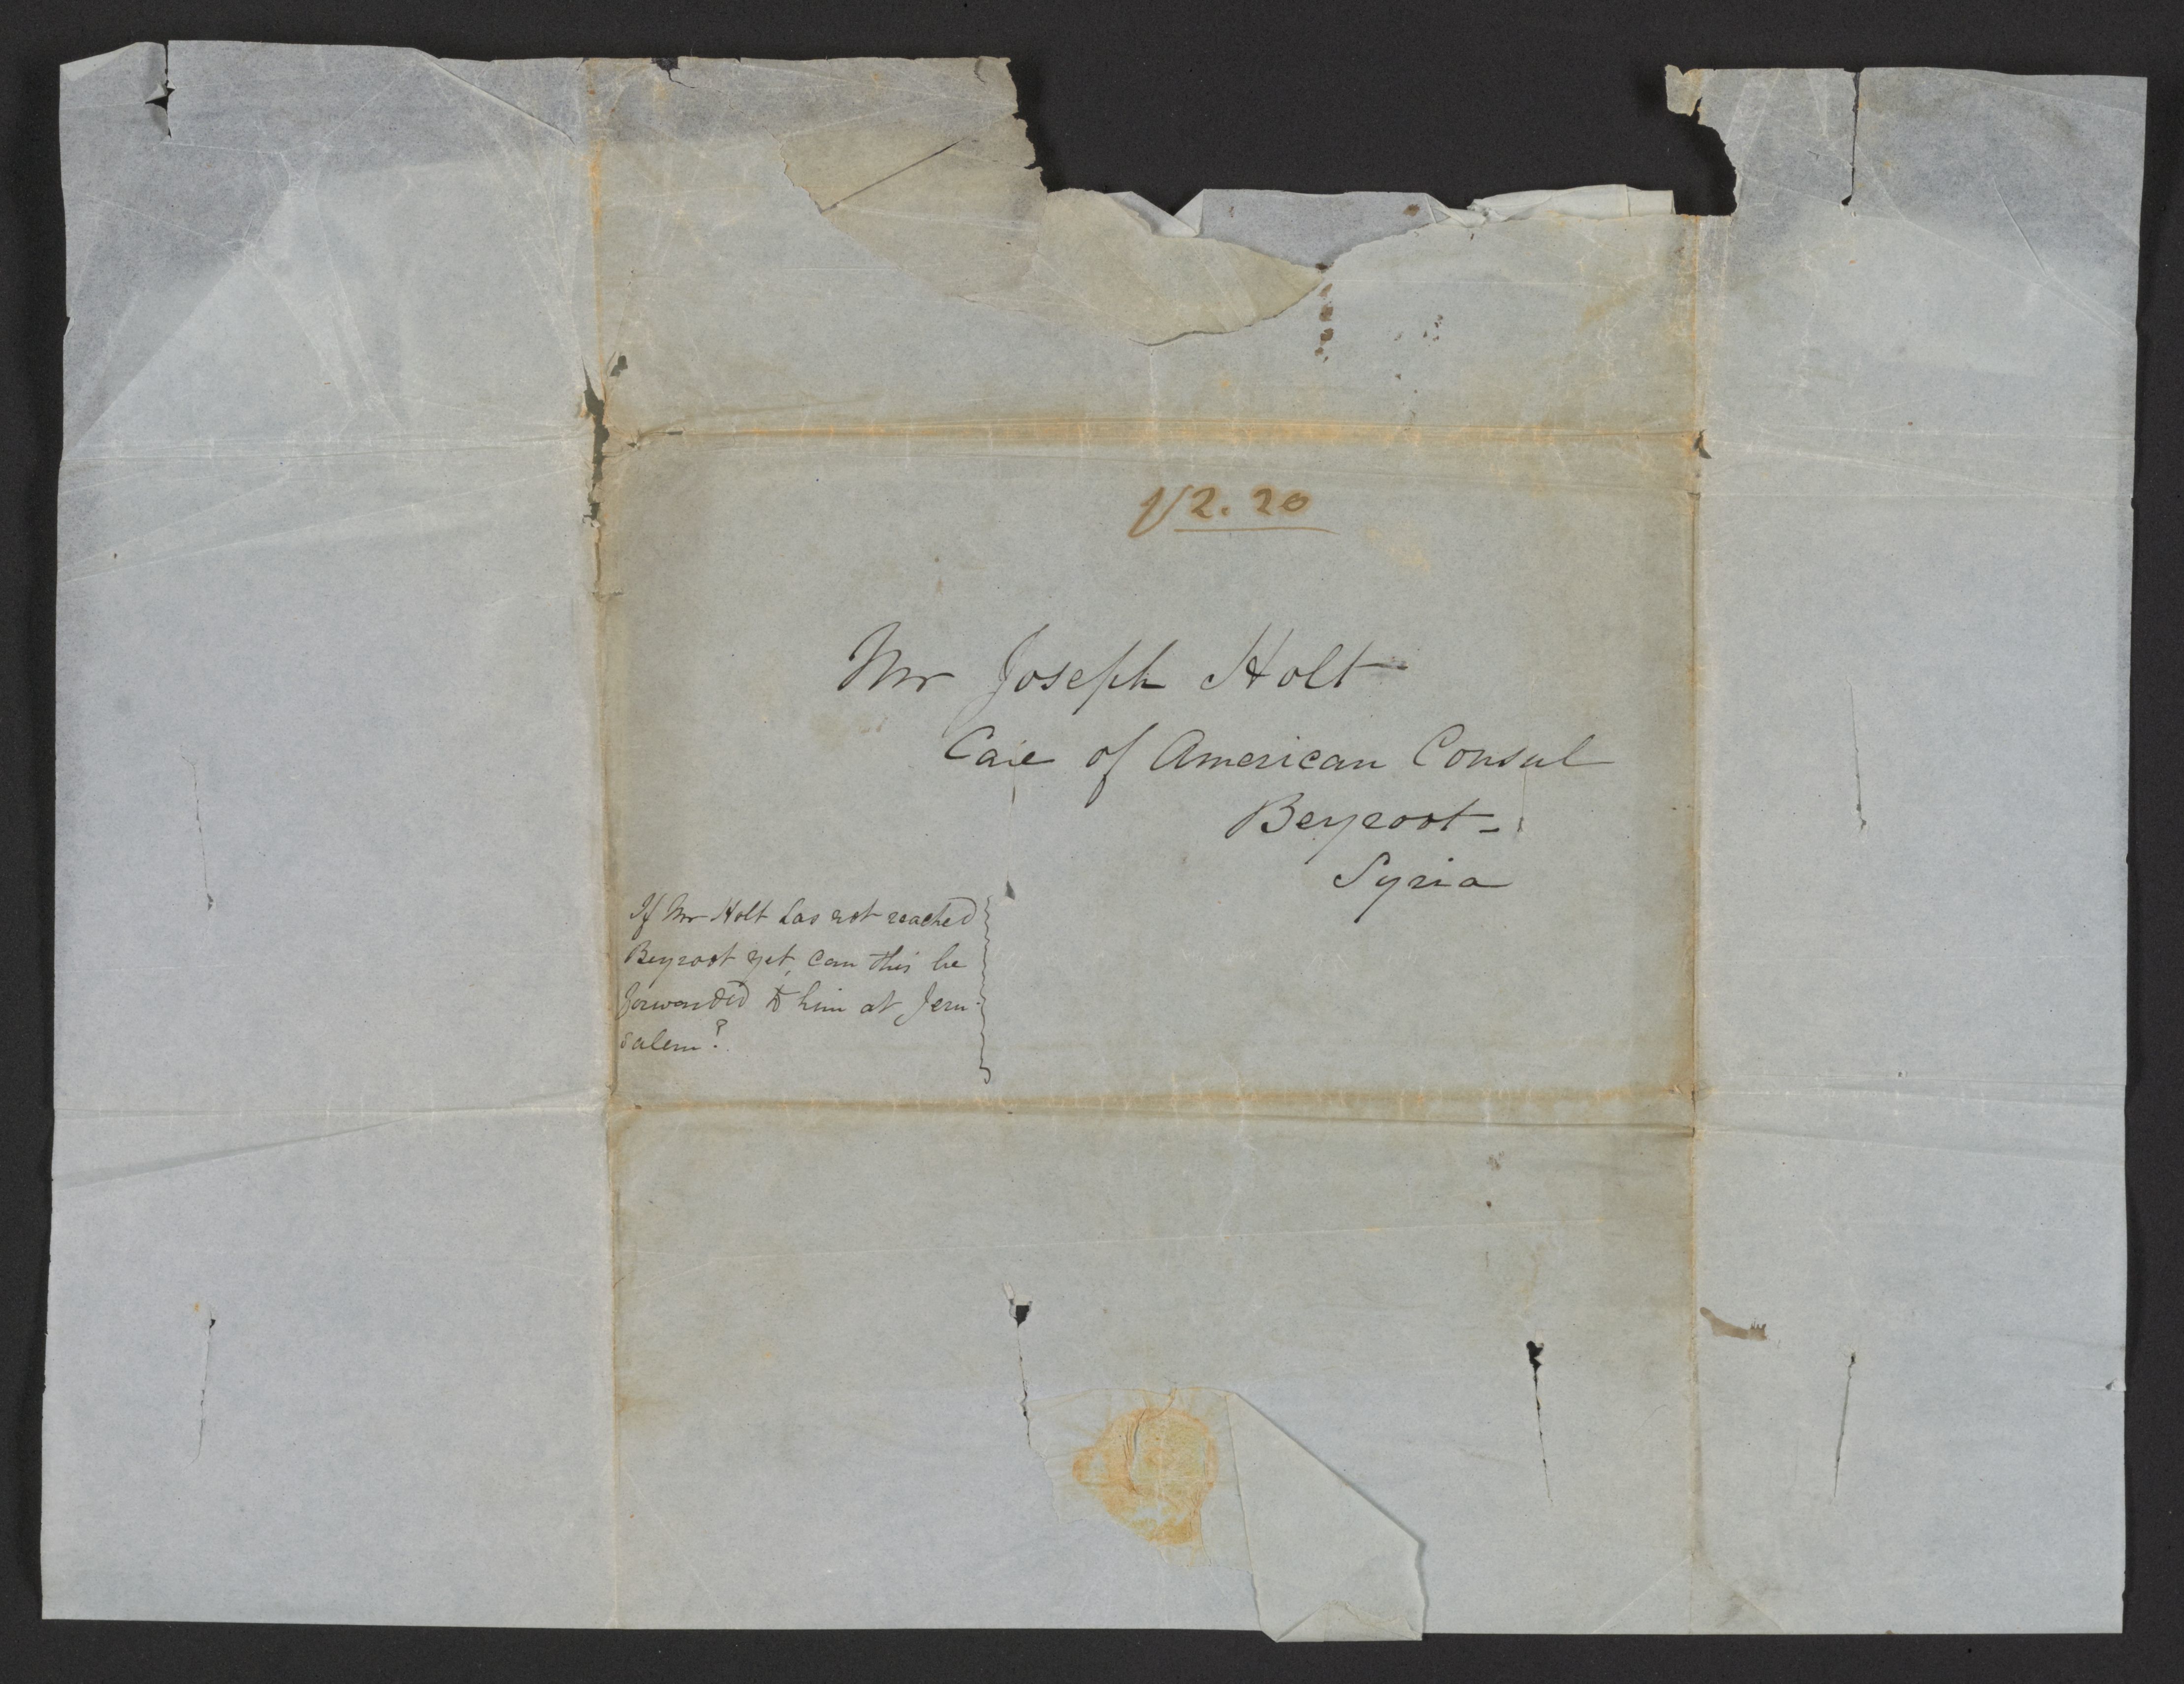 2.20
Mr Joseph Holt
Care of American Consul
Beyroot -
Syria
If Mr Holt has not reached
Beyroot yet, can this be
forwarded to him at Jeru-
salem?